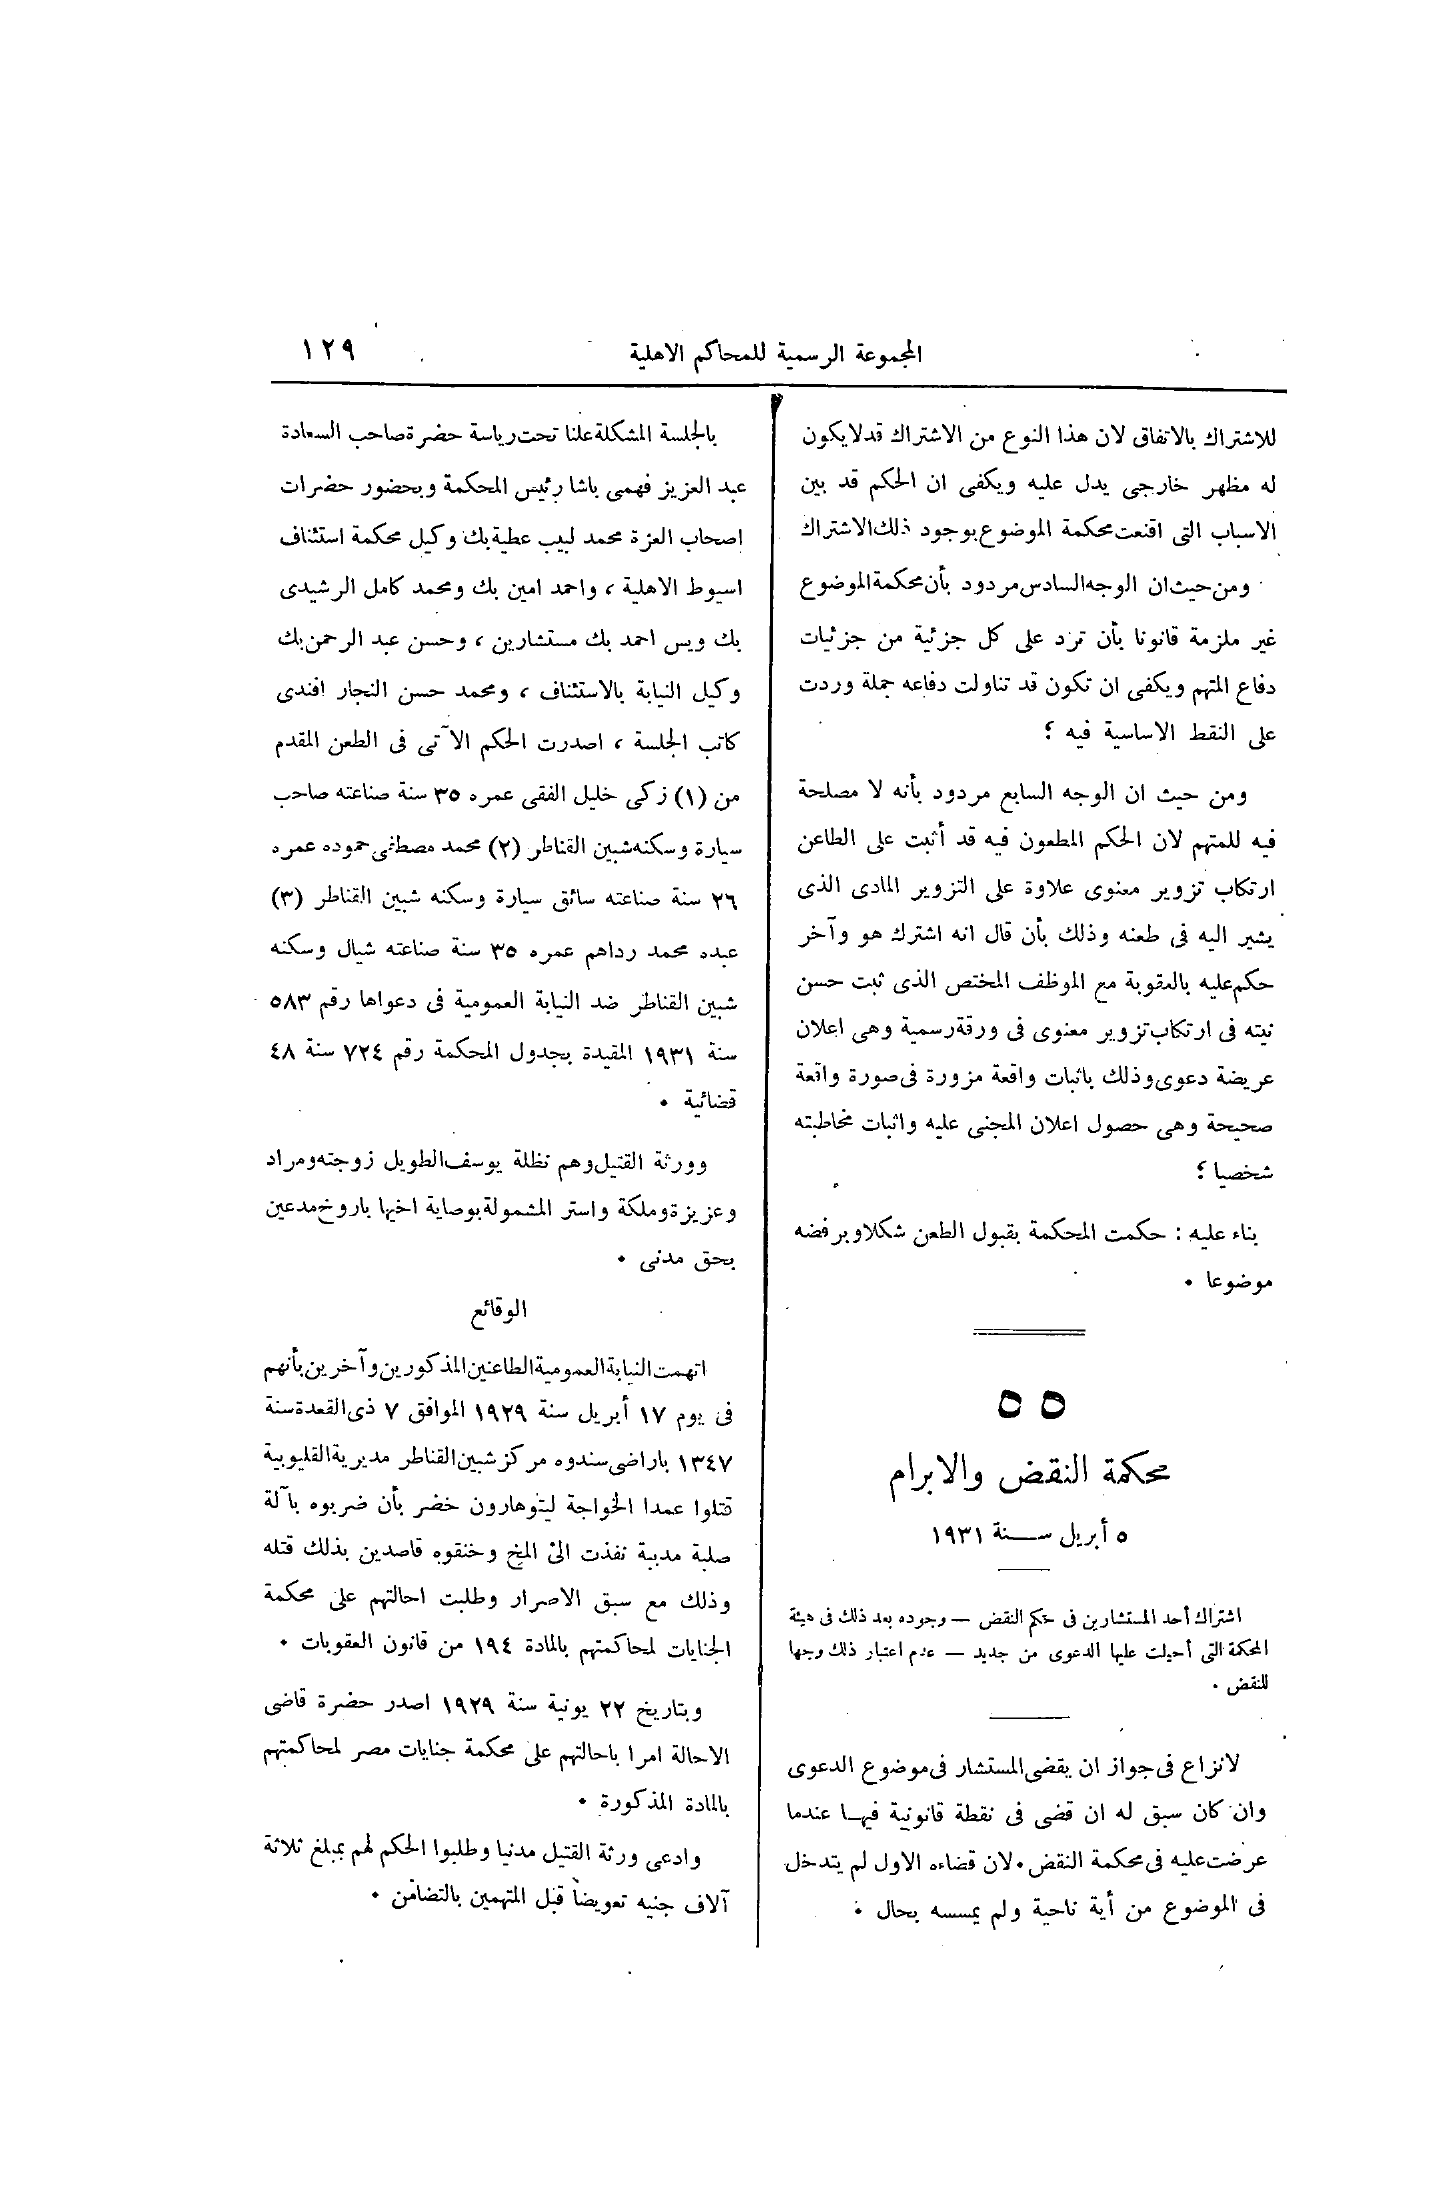 المجموعة الرسمية للمحاكم الاهلية ١٢٩
للاشتراك بالاتفاق لان هذا النوع من الاشتراك قد لا يكون
له مظهر خارجى يدل عليه ويكفى ان الحكم قد بين
الاسباب التى اقنعت محكمة الموضوع بوجود ذلك الاشتراك
ومن حيث ان الوجه السادس مردود بأن محكمة الموضوع
غير ملزمة قانونا بأن ترد على كل جزئية من جزئيات
دفاع المتهم ويكفى ان تكون قد تناولت دفاعه جملة وردت
على النقط الاساسية فيه ؛
ومن حيث ان الوجه السابع مردود بأنه لا مصلحة
فيه للمتهم لان الحكم المطعون فيه قد أثبت على الطاعن
ارتكاب تزوير معنوى علاوة على التزوير المادى الذى
يشير اليه فى طعنه وذلك بأن قال انه اشترك هو وآخر
حكم عليه بالعقوبة مع الموظف المختص الذى ثبت حسن
نيته فى ارتكاب تزوير معنوى فى ورقة رسمية وهى اعلان
عريضة دعوى وذلك باثبات واقعة مزورة فى صورة واقعة
صحيحة وهى حصول اعلان المجنى عليه واثبات مخاطبته
شخصيا ؛
بناء عليه : حكمت المحكمة بقبول الطعن شكلا وبرفضه
موضوعا ٠
٥٥
محكمة النقض والابرام
٥ أبريل سـنة ١٩٣١
اشتراك أحد المستشارين فى حكم النقض — وجوده بعد ذلك فى هيئة
المحكمة التى أحيلت عليها الدعوى من جديد — عدم اعتبار ذلك وجها
للنقض ٠
لا نزاع فى جواز ان يقضى المستشار فى موضوع الدعوى
وان كان سبق له ان قضى فى نقطة قانونية فيها عندما
عرضت عليه فى محكمة النقض ٠ لان قضاءه الاول لم يتدخل
فى الموضوع من أية ناحية ولم يمسسه بحال ٠
بالجلسة المشكلة علنا تحت رياسة حضرة صاحب السعادة
عبد العزيز فهمى باشا رئيس المحكمة وبحضور حضرات
اصحاب العزة محمد لبيب عطية بك وكيل محكمة استئناف
اسيوط الاهلية ، واحمد امين بك ومحمد كامل الرشيدى
بك ويس احمد بك مستشارين ، وحسن عبد الرحمن بك
وكيل النيابة بالاستئناف ، ومحمد حسن النجار افندى
كاتب الجلسة ، اصدرت الحكم الآتى فى الطعن المقدم
من (١) زكى خليل الفقى عمره ٣٥ سنة صناعته صاحب
سيارة وسكنه شبين القناطر (٢) محمد مصطفى حموده عمره
٢٦ سنة صناعته سائق سيارة وسكنه شبين القناطر (٣)
عبده محمد رداهم عمره ٣٥ سنة صناعته شيال وسكنه
شبين القناطر ضد النيابة العمومية فى دعواها رقم ٥٨٣
سنة ١٩٣١ المقيدة بجدول المحكمة رقم ٧٢٤ سنة ٤٨
قضائية ٠
وورثة القتيل وهم نظلة يوسف الطويل زوجته ومراد
وعزيزة وملكة واستر المشمولة بوصاية اخيها باروخ مدعين
بحق مدنى ٠
الوقائع
اتهمت النيابة العمومية الطاعنين المذكورين وآخرين بأنهم
فى يوم ١٧ أبريل سنة ١٩٢٩ الموافق ٧ ذى القعدة سنة
١٣٤٧ باراضى سندوه مركز شبين القناطر مديرية القليوبية
قتلوا عمدا الخواجة ليتوهارون خضر بأن ضربوه بآلة
صلبة مدببة نفذت الى المخ وخنقوه قاصدين بذلك قتله
وذلك مع سبق الاصرار وطلبت احالتهم على محكمة
الجنايات لمحاكمتهم بالمادة ١٩٤ من قانون العقوبات ٠
وبتاريخ ٢٢ يونية سنة ١٩٢٩ اصدر حضرة قاضى
الاحالة امرا باحالتهم على محكمة جنايات مصر لمحاكمتهم
بالمادة المذكورة ٠
وادعى ورثة القتيل مدنيا وطلبوا الحكم لهم بمبلغ ثلاثة
آلاف جنيه تعويضاً قبل المتهمين بالتضامن ٠